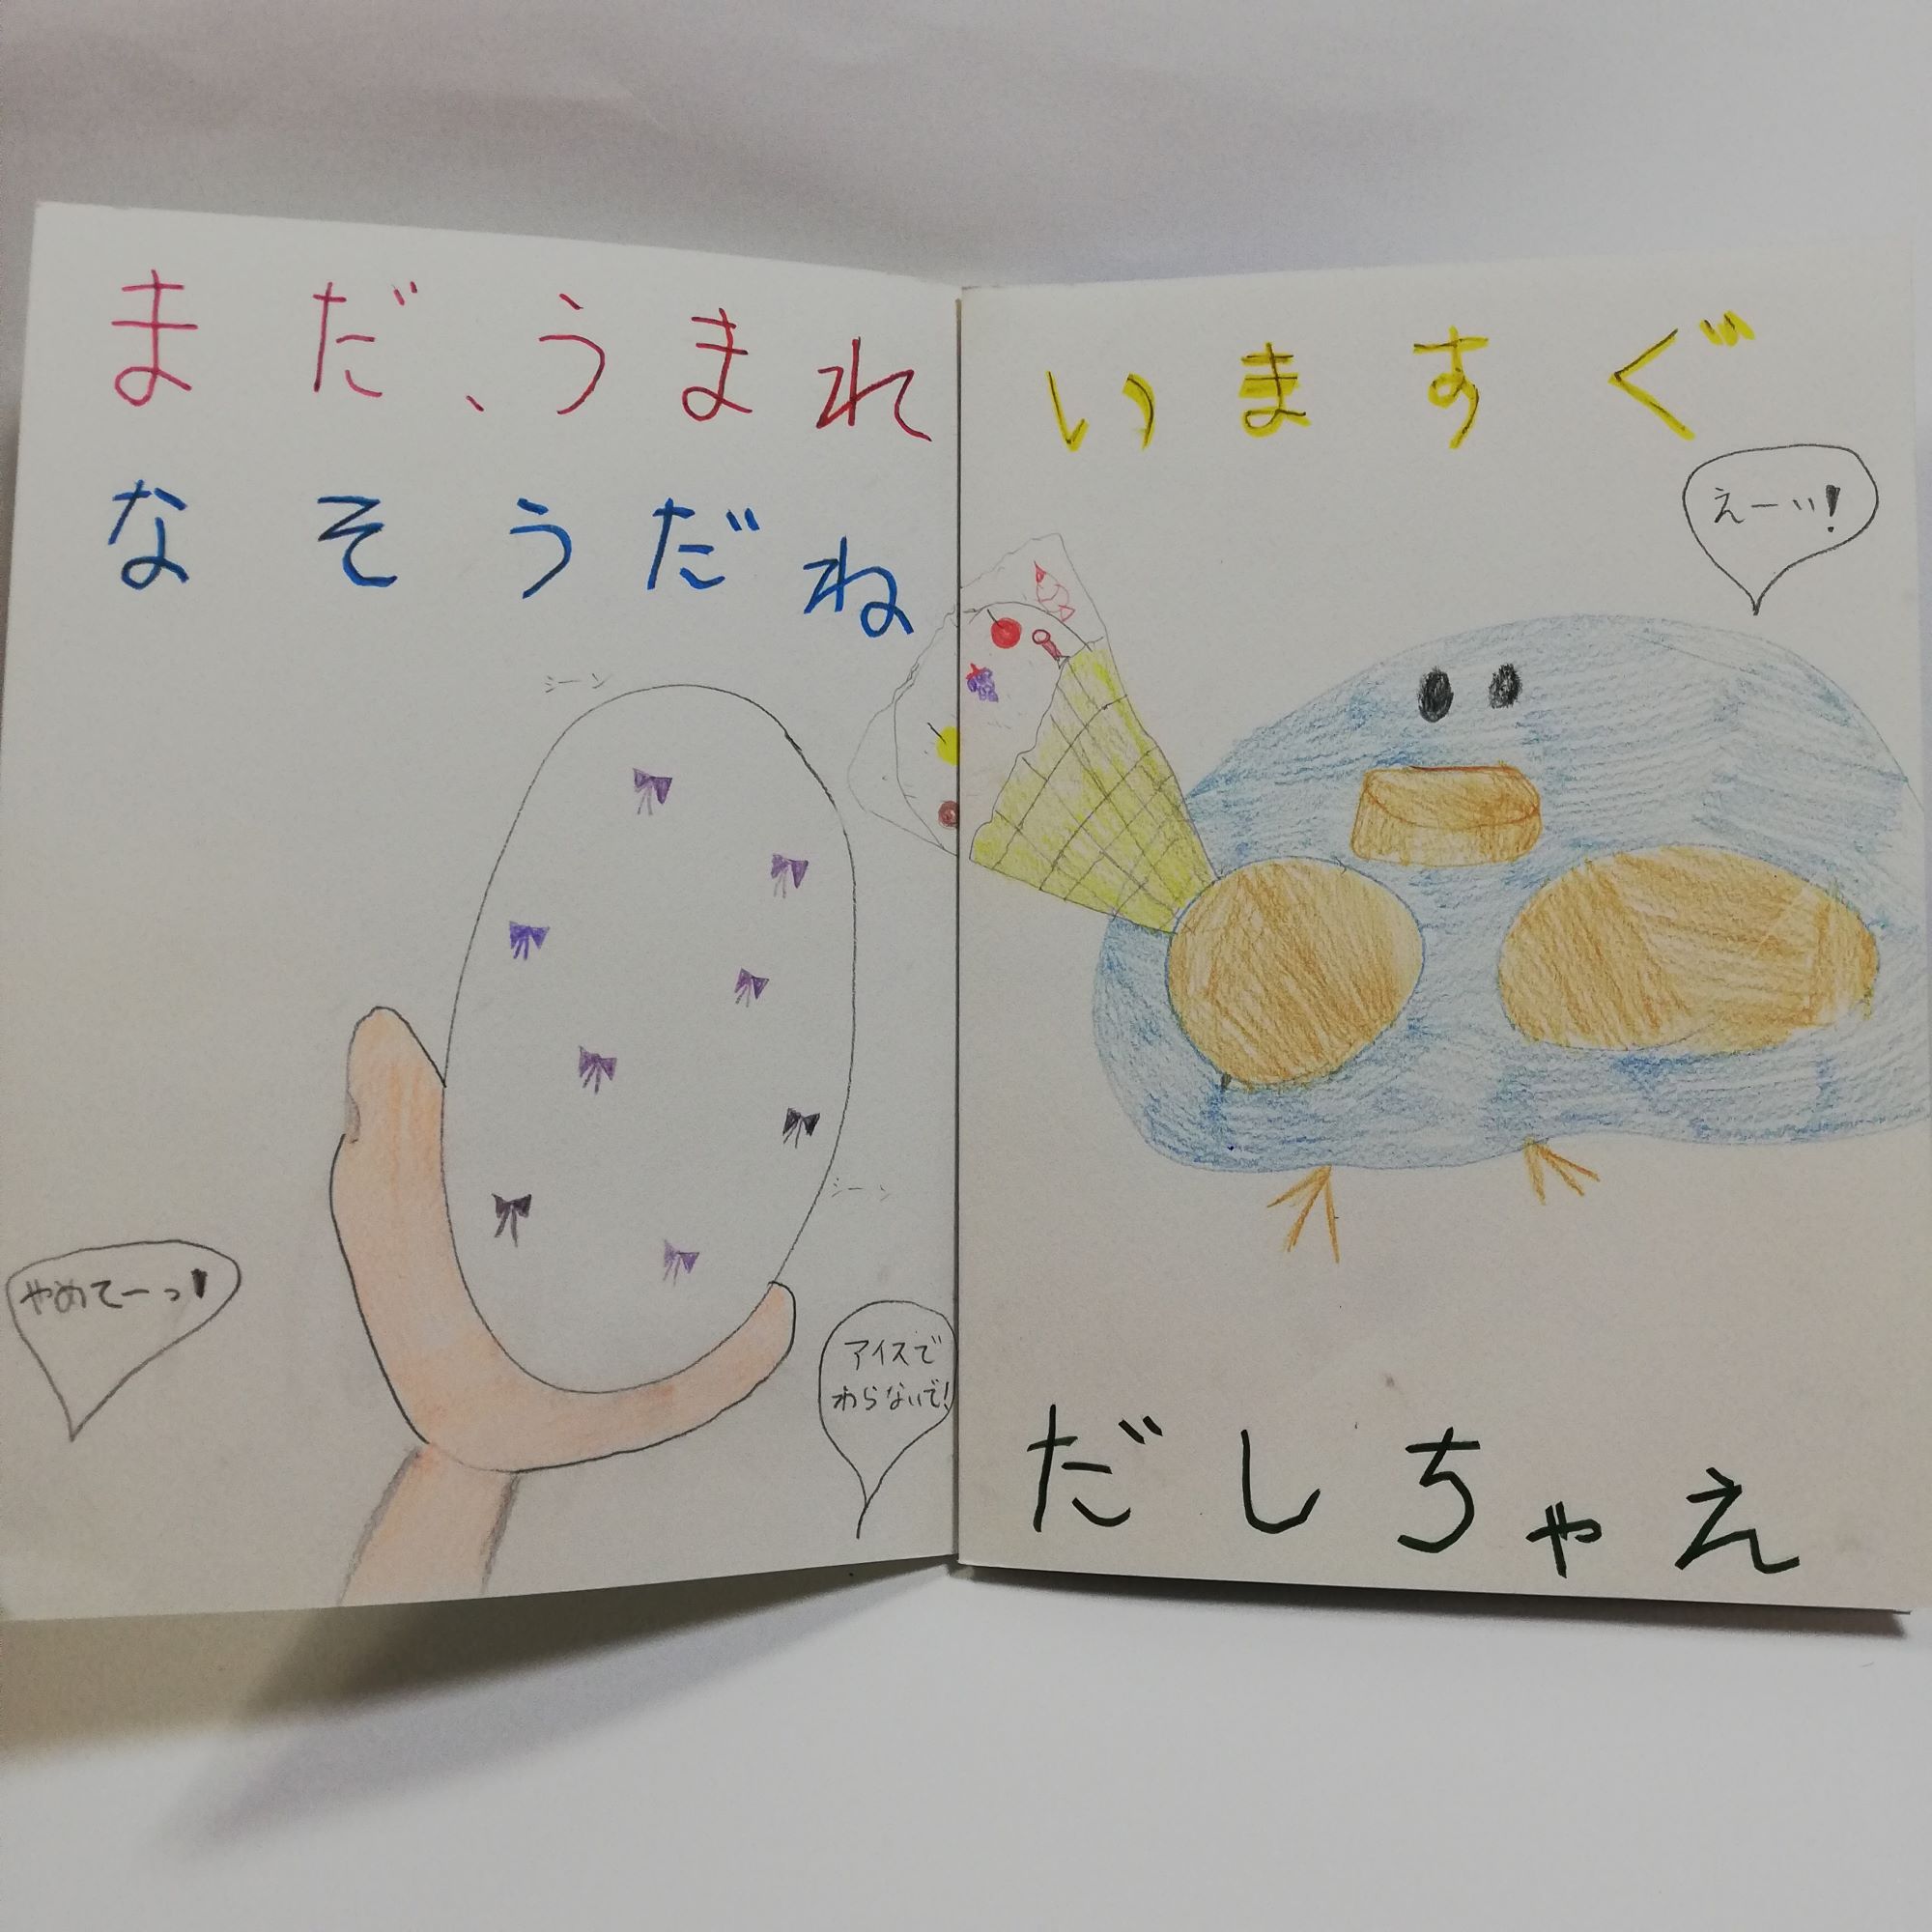 まだ、うまれ
なそうだね
シーン
シーン
やめてーっ!
アイスで
わらないで!
いますぐ
えーッ!
だしちゃえ